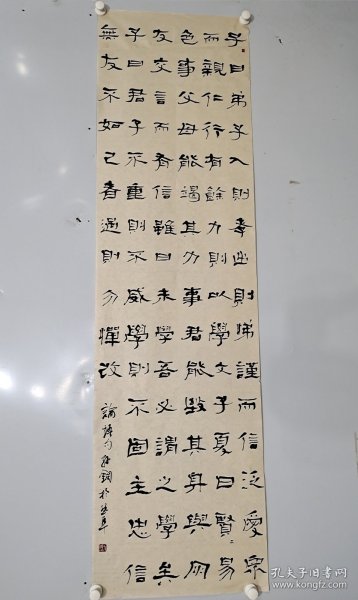 子曰弟子入則孝出則弟謹而信泛愛眾
而親仁行有餘力則以學文子夏曰賢〻易
色事父母能竭其力事君能致其身與朋
友交言而有信雖曰未學吾必謂之學矣
子曰君子不重則不威學則不固主忠信
無友不如己者過則勿憚改
論語句 於曲阜
孔夫子旧书网
kongfz.com